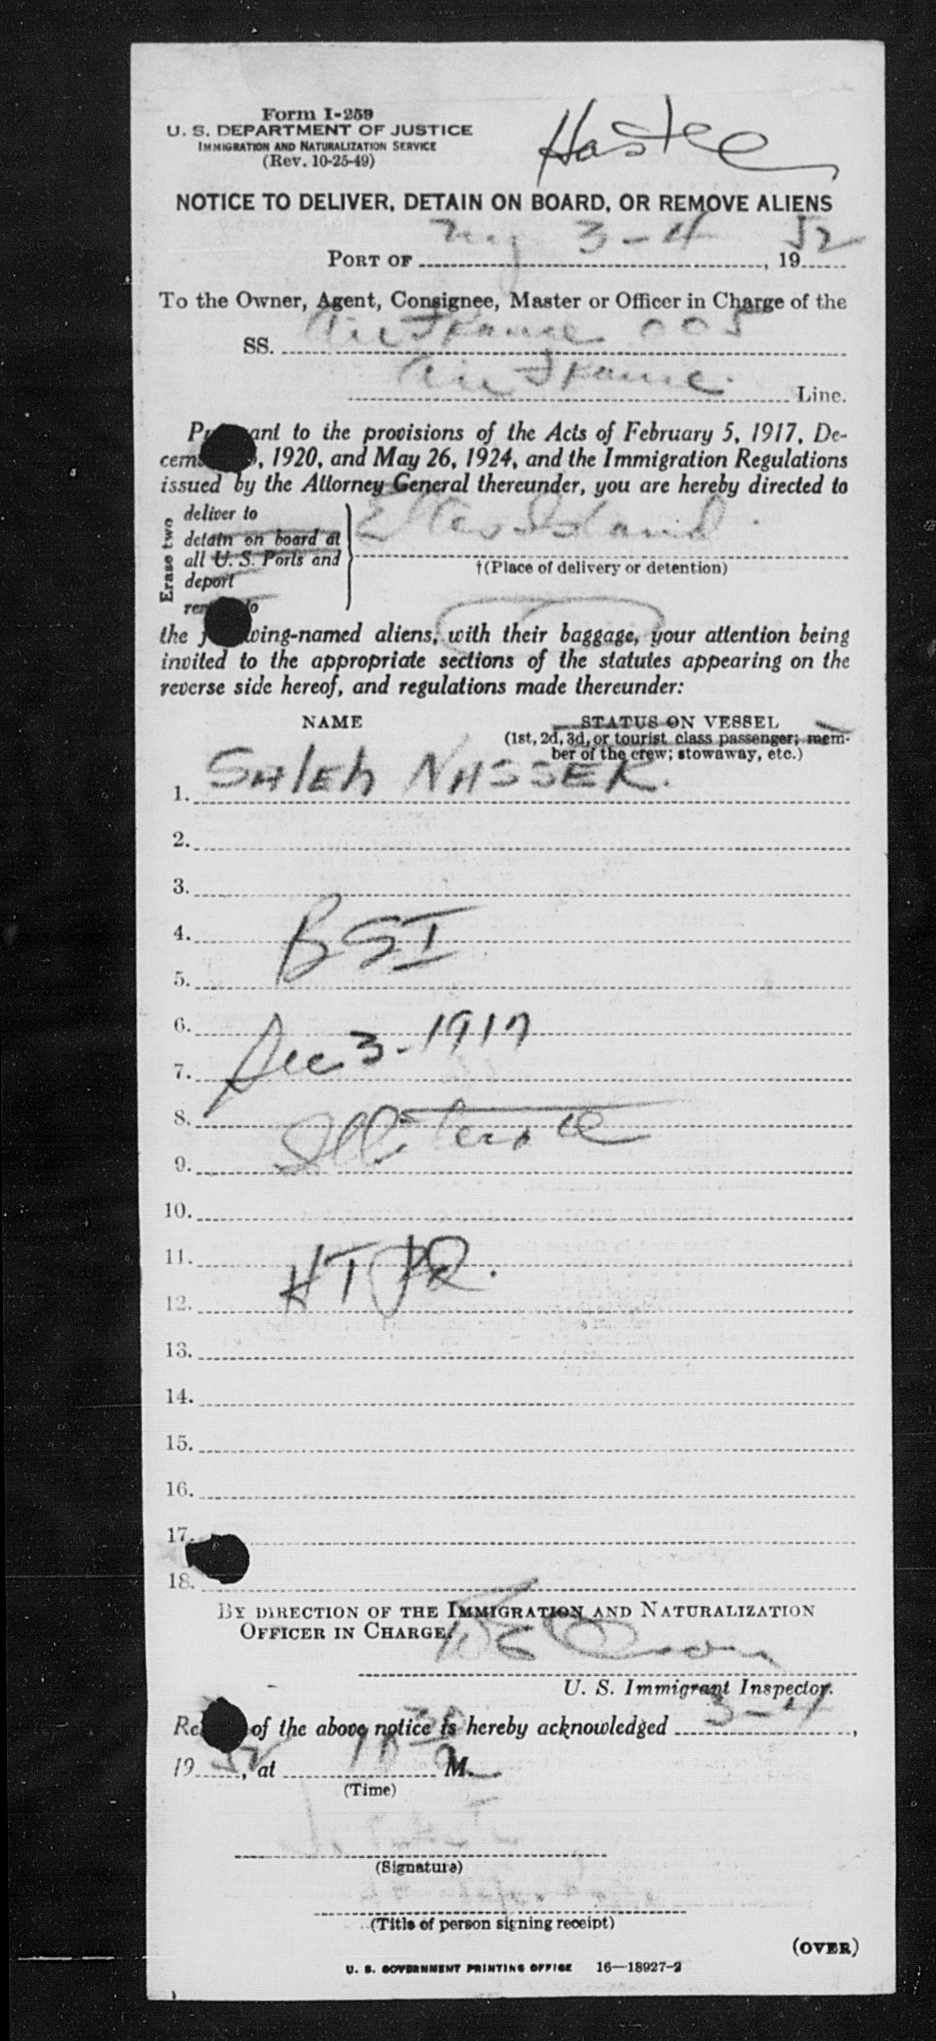 Form I-259
U. S. DEPARTMENT OF JUSTICE
IMMIGRATION AND NATURALIZATION SERVICE
(Rev. 10-25-49)
NOTICE TO DELIVER, DETAIN ON BOARD, OR REMOVE ALIENS
PORT OF NY 3-4, 1952
To the Owner, Agent, Consignee, Master or Officer in Charge of the
SS. Air France 005
Air France Line.
Pursuant to the provisions of the Acts of February 5, 1917, De-
cember , 1920, and May 26, 1924, and the Immigration Regulations
issued by the Attorney General thereunder, you are hereby directed to
Erase two
deliver to
detain on board at
all U. S. Ports and
deport
remove to
Ellis Island
†(Place of delivery or detention)
the following-named aliens, with their baggage, your attention being
invited to the appropriate sections of the statutes appearing on the
reverse side hereof, and regulations made thereunder:
NAME STATUS ON VESSEL
(1st, 2d, 3d, or tourist class passenger; mem-
ber of the crew; stowaway, etc.)
1. SALEH NASSER.
2.
3.
4. BSI
5.
6. Sec 3-1917
7.
8. Illiterate
9.
10.
11.
12.
13.
14.
15.
16.
17.
18.
BY DIRECTION OF THE IMMIGRATION AND NATURALIZATION
OFFICER IN CHARGE.
U. S. Immigrant Inspector.
Receipt of the above notice is hereby acknowledged 3-4,
1952, at 10 30 A M.
(Time)
(Signature)
(Title of person signing receipt)
(OVER)
U. S. GOVERNMENT PRINTING OFFICE 16—18927-2